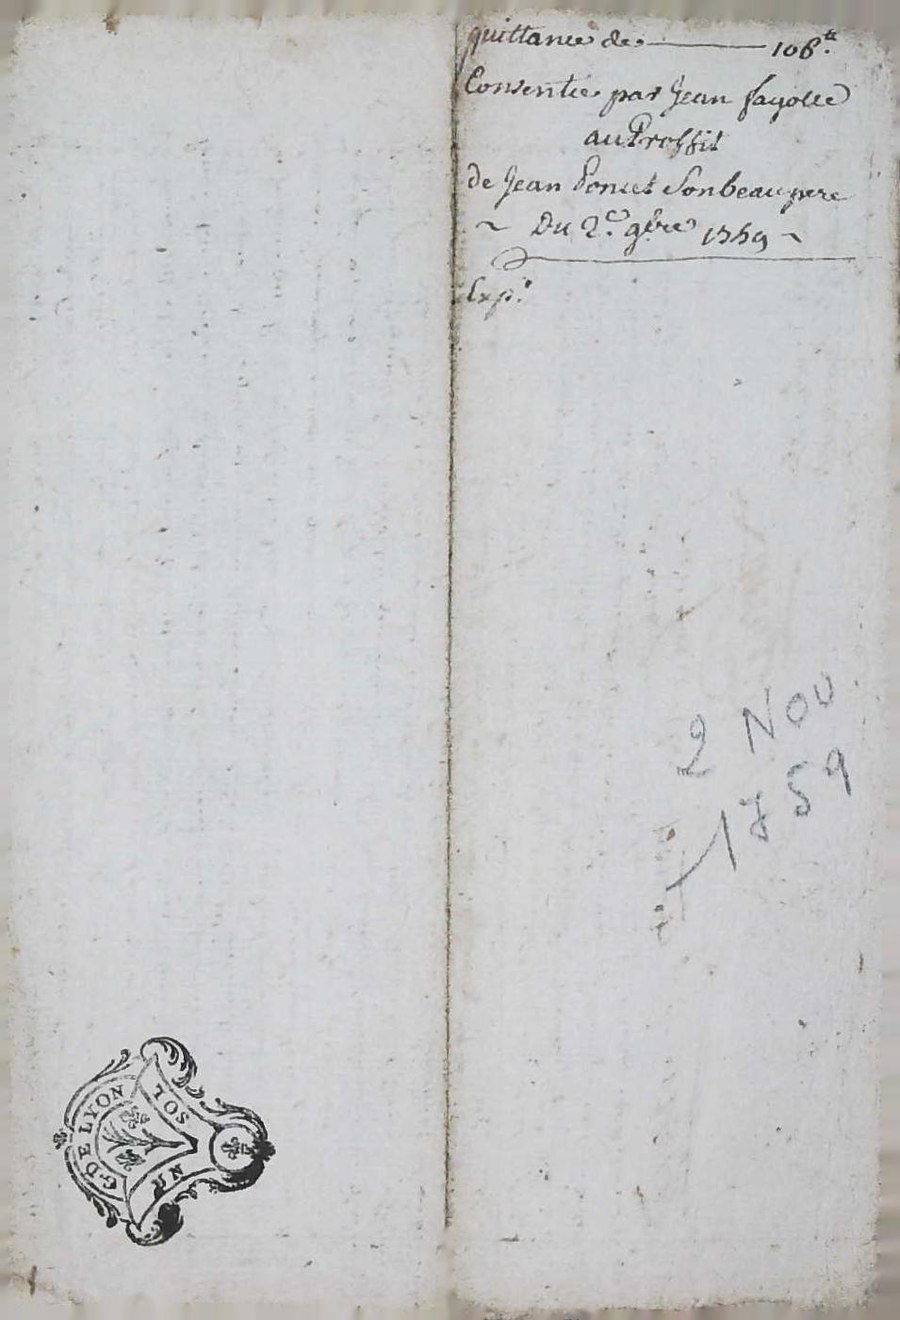 quittance de 106 ₶.
Consentie par Jean fayolle
au Proffit
de Jean Poncet Son beau pere
~ Du 2.e 9bre 1759 ~
Exp.
2 Nov
1759
G. DE LYON
UN SOL